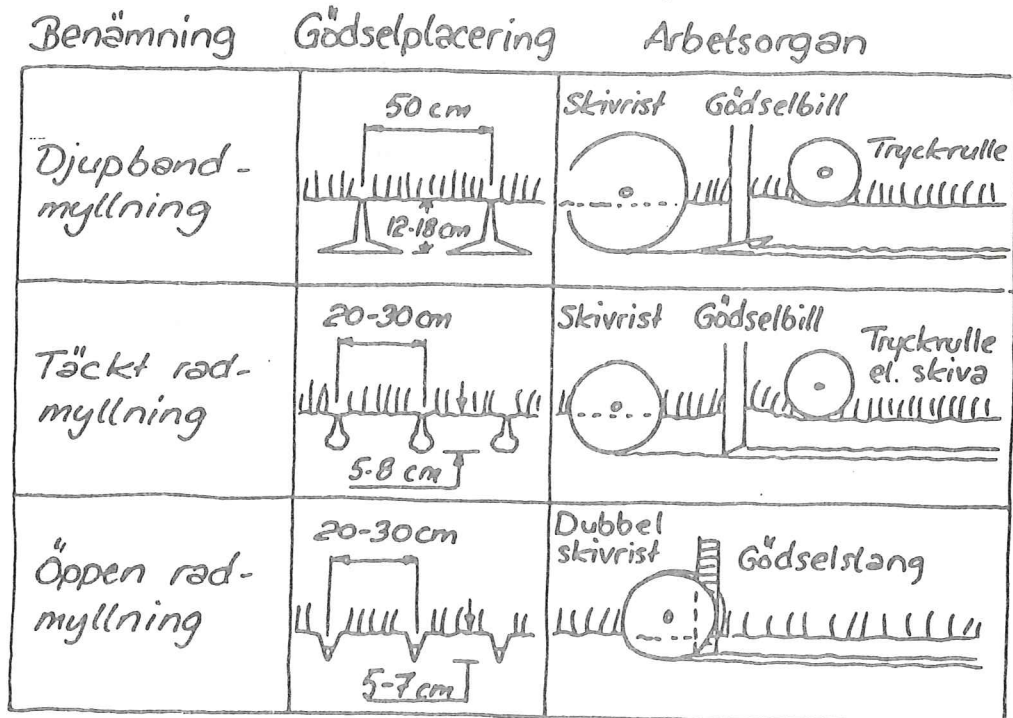 Benämning Gödselplacering Arbetsorgan
Djupband-
myllning
50 cm
12-18 cm
Skivrist Gödselbill
Tryckrulle
Täckt rad-
myllning
20-30 cm
5-8 cm
Skivrist Gödselbill
Tryckrulle
el. skiva
Öppen rad-
myllning
20-30 cm
5-7 cm
Dubbel
skivrist
Gödselslang